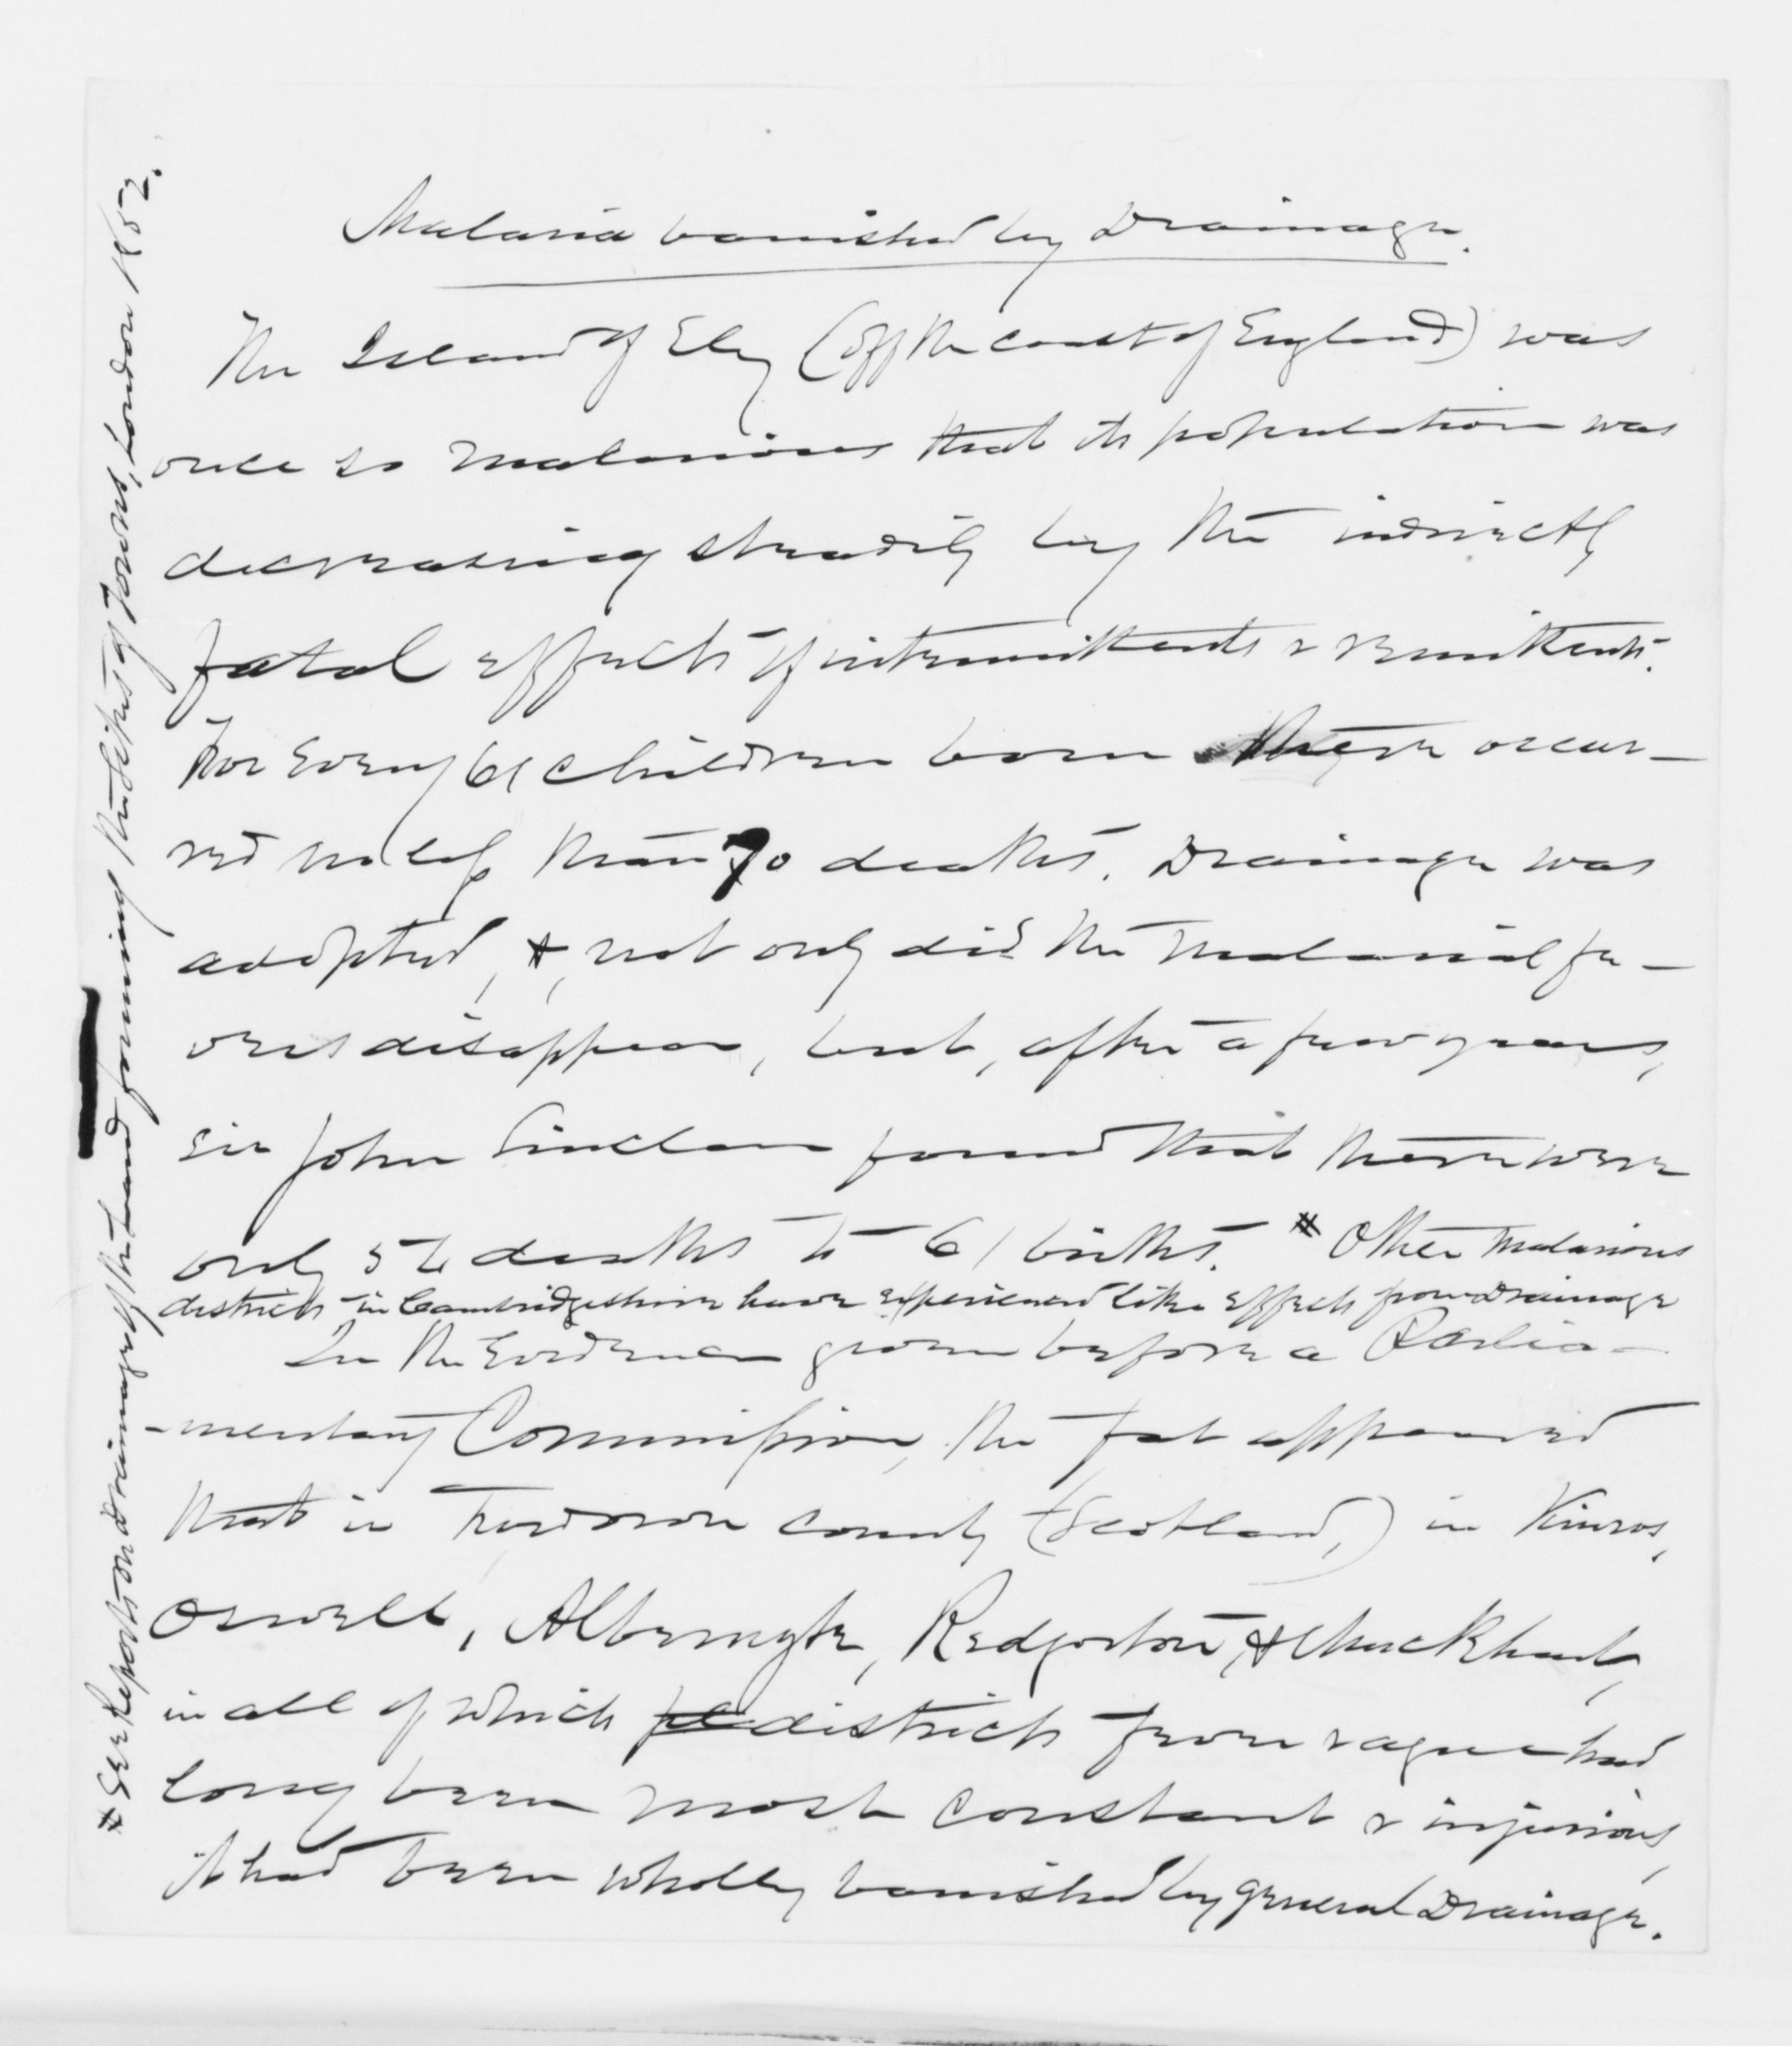 Malaria banished by Drainage.
The Island of Ely (off the coast of England) was
once so malarious that its population was
decreasing steadily by the indirectly
fatal effects of intermittents & remittents.
For every 61 children born there occur-
red no less than 70 deaths. Drainage was
adopted, &, not only did the malarial fe-
vers disappear, but, after a few years,
Sir John Sinclair found that there were
only 54 deaths to 61 births. # Other malarious
districts in Cambridgeshire have experienced like effects from Drainage
In the Evidence given before a Parlia-
-mentary Commission, the fact appeared
that in county (Scotland,) in Kinros,
Oswell, Redgorton, &
in all of which districts fever & ague had
long been most constant & injurious,
it had been wholly banished by general Drainage.
# See Reports on drainage of the Land forming the Sites of Towns, London 1852.